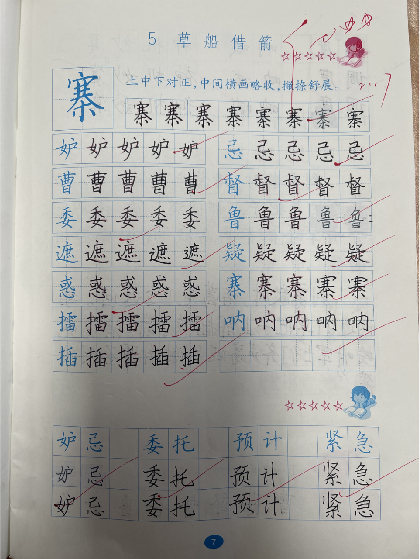 5 草船借箭
☆☆☆☆☆
寨 上中下对正，中间横画略收，撇捺舒展。
寨 寨 寨 寨 寨 寨 寨 寨
妒 妒 妒 妒 妒 忌 忌 忌 忌 忌
曹 曹 曹 曹 曹 督 督 督 督 督
委 委 委 委 委 鲁 鲁 鲁 鲁 鲁
遮 遮 遮 遮 遮 疑 疑 疑 疑 疑
惑 惑 惑 惑 惑 寨 寨 寨 寨 寨
擂 擂 擂 擂 擂 呐 呐 呐 呐 呐
插 插 插 插 插
☆☆☆☆☆
妒忌 委托 预计 紧急
妒忌 委托 预计 紧急
妒忌 委托 预计 紧急
7